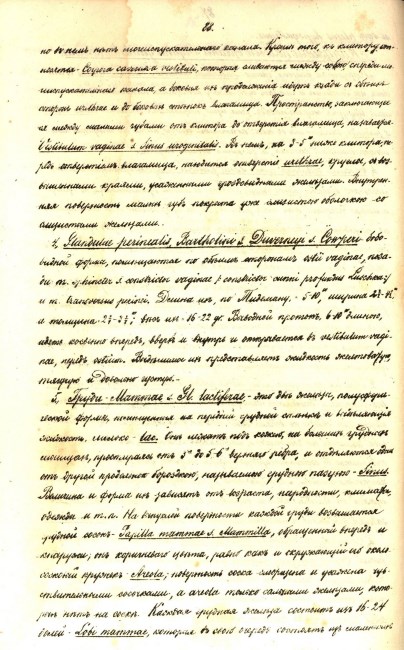 28.
но въ немъ нѣтъ мочеиспускательнаго канала. Кромѣ того, къ клитору от-
носятся Corpora cavernosa vestibuli, которыя сливаются между собою спереди мо-
чеиспускательнаго канала, а боковыя ихъ продолженія идутъ кзади съ обѣихъ
сторонъ urethrae и до боковыхъ стѣнокъ влагалища. Пространство, заключающее-
ся между малыми губами отъ клитора до отверстія влагалища, называется
Vestibulum vaginae s. Sinus urogenitalis. Въ немъ, на ниже клитора, пе-
редъ отверстіемъ влагалища, находится отверстіе urethrae, круглое, съ воз-
вышенными краями, усаженными гроздовидными железами. Внутрен-
няя поверхность малыхъ губъ покрыта уже слизистою оболочкою со
слизистыми железами.
Glandulae perinealis, Bartholini s. Duverneyi s. Cowperi бобо-
видной формы, помѣщаются по обѣимъ сторонамъ ostii vaginae, поза-
ди m. sphincter s. constrictor vaginae / constrictor cunni profundus Luschka /
и m. transversus perinei. Длина ихъ, по Тидеману, 5-10''' ширина
и толщина вѣсъ ихъ 16-22 gr. Выводной протокъ, 6-10''' длиною,
идетъ косвенно впередъ, вверхъ и внутрь и открывается въ vestibulum vagi-
nae, передъ ostium. Выдѣленіе ихъ представляетъ жидкость желтоватую,
тягучую и довольно густую.
Груди - Mammae s. Gl. lactiferae - это двѣ железы, полусфери-
ческой формы, помѣщенныя на передней грудной стѣнкѣ и выдѣляющія
жидкость, молоко - lac. Онѣ лежатъ подъ кожею, на большихъ грудныхъ
мышцахъ, простираясь отъ 3го до 5-6го ребра, и отдѣляются одна
отъ другой продольною бороздкою, называемою грудною пазухою - Sinus.
Величина и форма ихъ зависятъ отъ возраста, народности, климата,
одежды и т. п. На выпуклой поверхности каждой груди возвышается
грудной сосокъ - Papilla mammae s. Mammilla, обращенный впередъ и
кнаружи; онъ коричневаго цвѣта, равно какъ и окружающій его около-
сосковый кружокъ - Areola; поверхность соска сморщена и усажена чув-
ствительными сосочками, а areola только сальными железами, кото-
рыхъ нѣтъ на соскѣ. Каждая грудная железа состоитъ изъ 16-24
долей - Lobi mammae, которыя въ свою очередь состоятъ изъ